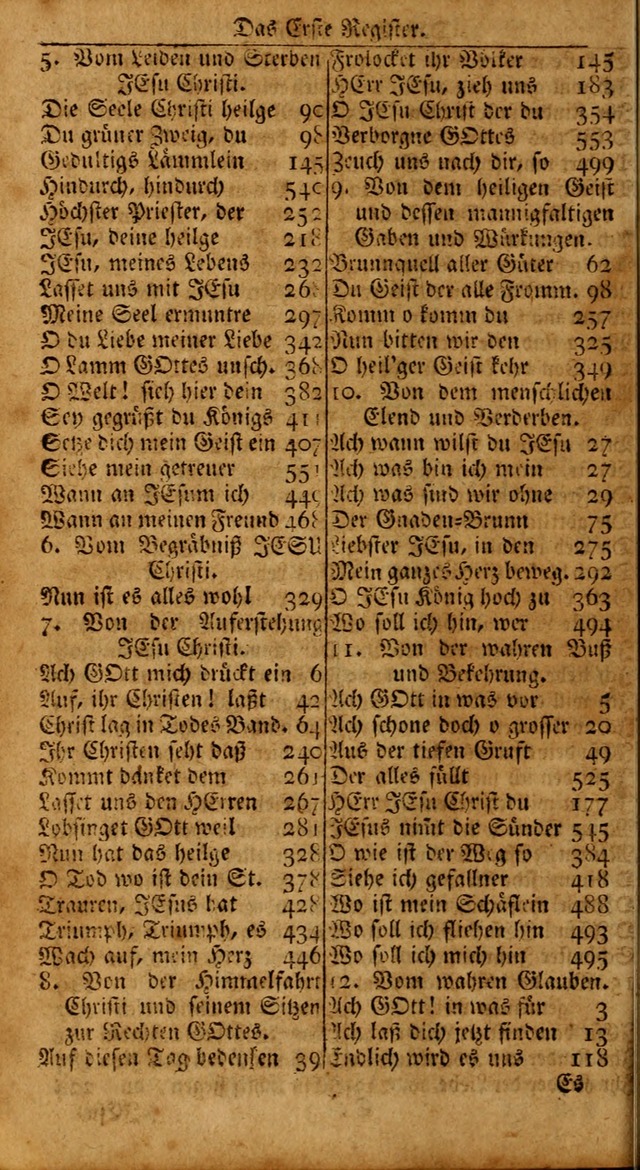 Das Erste Register.
5. Vom Leiden und Sterben
JEsu Christi.
Die Seele Christi heilge 90
Du grüner Zweig, du 98
Gedultigs Lämmlein 145
Hindurch, hindurch 540
Höchster Priester, der 252
JEsu, deine heilge 218
JEsu, meines Lebens 232
Lasset uns mit JEsu 268
Meine Seel ermuntre 297
O du Liebe meiner Liebe 342
O Lamm GOttes unsch. 368
O Welt! sieh hier dein 382
Sey gegrüßt du Königs 411
Setze dich mein Geist ein 407
Siehe mein getreuer 551
Wann an JEsum ich 449
Wann an meinen Freund 468
6. Vom Begräbniß JESU
Christi.
Nun ist es alles wohl 329
7. Von der Auferstehung
JEsu Christi.
Ach GOtt mich drückt ein 6
Auf, ihr Christen! laßt 42
Christ lag in Todes Band. 64
Ihr Christen seht daß 240
Kommt danket dem 261
Lasset uns den HErren 267
Lobsinget GOtt weil 281
Nun hat das heilge 328
O Tod wo ist dein St. 378
Trauren, JEsus hat 428
Triumph, Triumph, es 434
Wach auf, mein Herz 446
8. Von der Himmelfahrt
Christi und seinem Sitzen
zur Rechten GOttes.
Auf diesen Tag bedenken 39
Frolocket ihr Völker 145
HErr JEsu, zieh uns 183
O JEsu Christ der du 354
Verborgne GOttes 553
Zeuch uns nach dir, so 499
9. Von dem heiligen Geist
und dessen mannigfaltigen
Gaben und Würkungen.
Brunnquell aller Güter 62
Du Geist der alle Fromm. 98
Komm o komm du 257
Nun bitten wir den 325
O heil'ger Geist kehr 349
10. Von dem menschlichen
Elend und Verderben.
Ach wann wilst du JEsu 27
Ach was bin ich mein 27
Ach was sind wir ohne 29
Der Gnaden-Brunn 75
Liebster JEsu, in den 275
Mein ganzes Herz beweg. 292
O JEsu König hoch zu 363
Wo soll ich hin, wer 494
11. Von der wahren Buß
und Bekehrung.
Ach GOtt in was vor 5
Ach schone doch o grosser 20
Aus der tiefen Gruft 49
Der alles füllt 525
HErr JEsu Christ du 177
JEsus nimt die Sünder 545
O wie ist der Weg so 384
Siehe ich gefallner 418
Wo ist mein Schäflein 488
Wo soll ich fliehen hin 493
Wo soll ich mich hin 495
12. Vom wahren Glauben.
Ach GOtt! in was für 3
Ach laß dich jetzt finden 13
Endlich wird es uns 118
Es